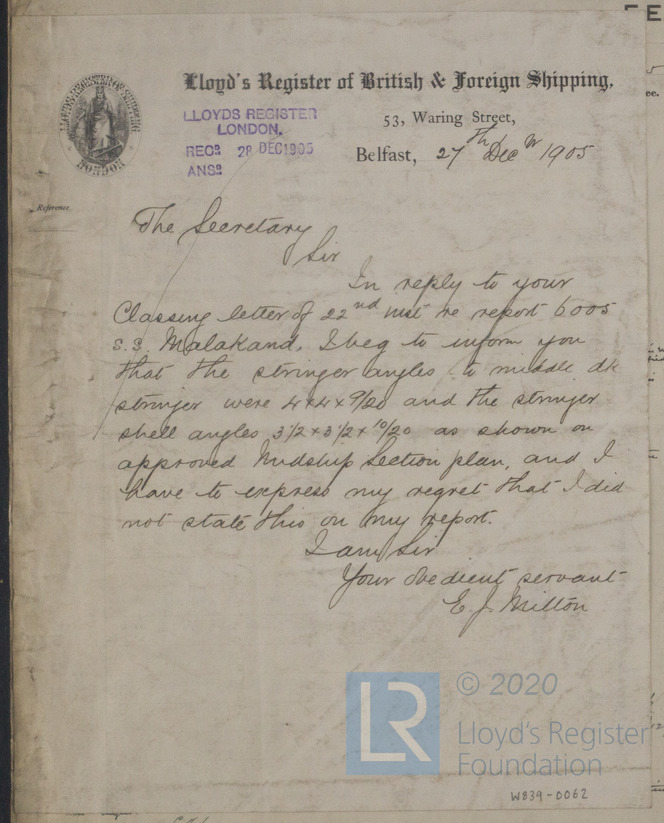 Lloyd's Register of British & Foreign Shipping,
LLOYDS REGISTER OF SHIPPING
LONDON
53, Waring Street,
LLOYDS REGISTER
LONDON.
RECD 28 DEC 1905
ANSD
Belfast, 27th Decr 1905
Reference
The Secretary
Sir
In reply to your
Classing letter of 22nd inst re report 6005
S.S. Malakand, I beg to inform you
that the stringer angles to middle dk
stringer were 4 x 4 x 9/20 and the stringer
shell angles 3 1/2 x 3 1/2 x 10/20 as shown on
approved Midship Section plan, and I
have to express my regret that I did
not state this on my report.
I am Sir
Your obedient servant
E. J. Milton
LR
© 2020
Lloyd's Register
Foundation
W839-0062